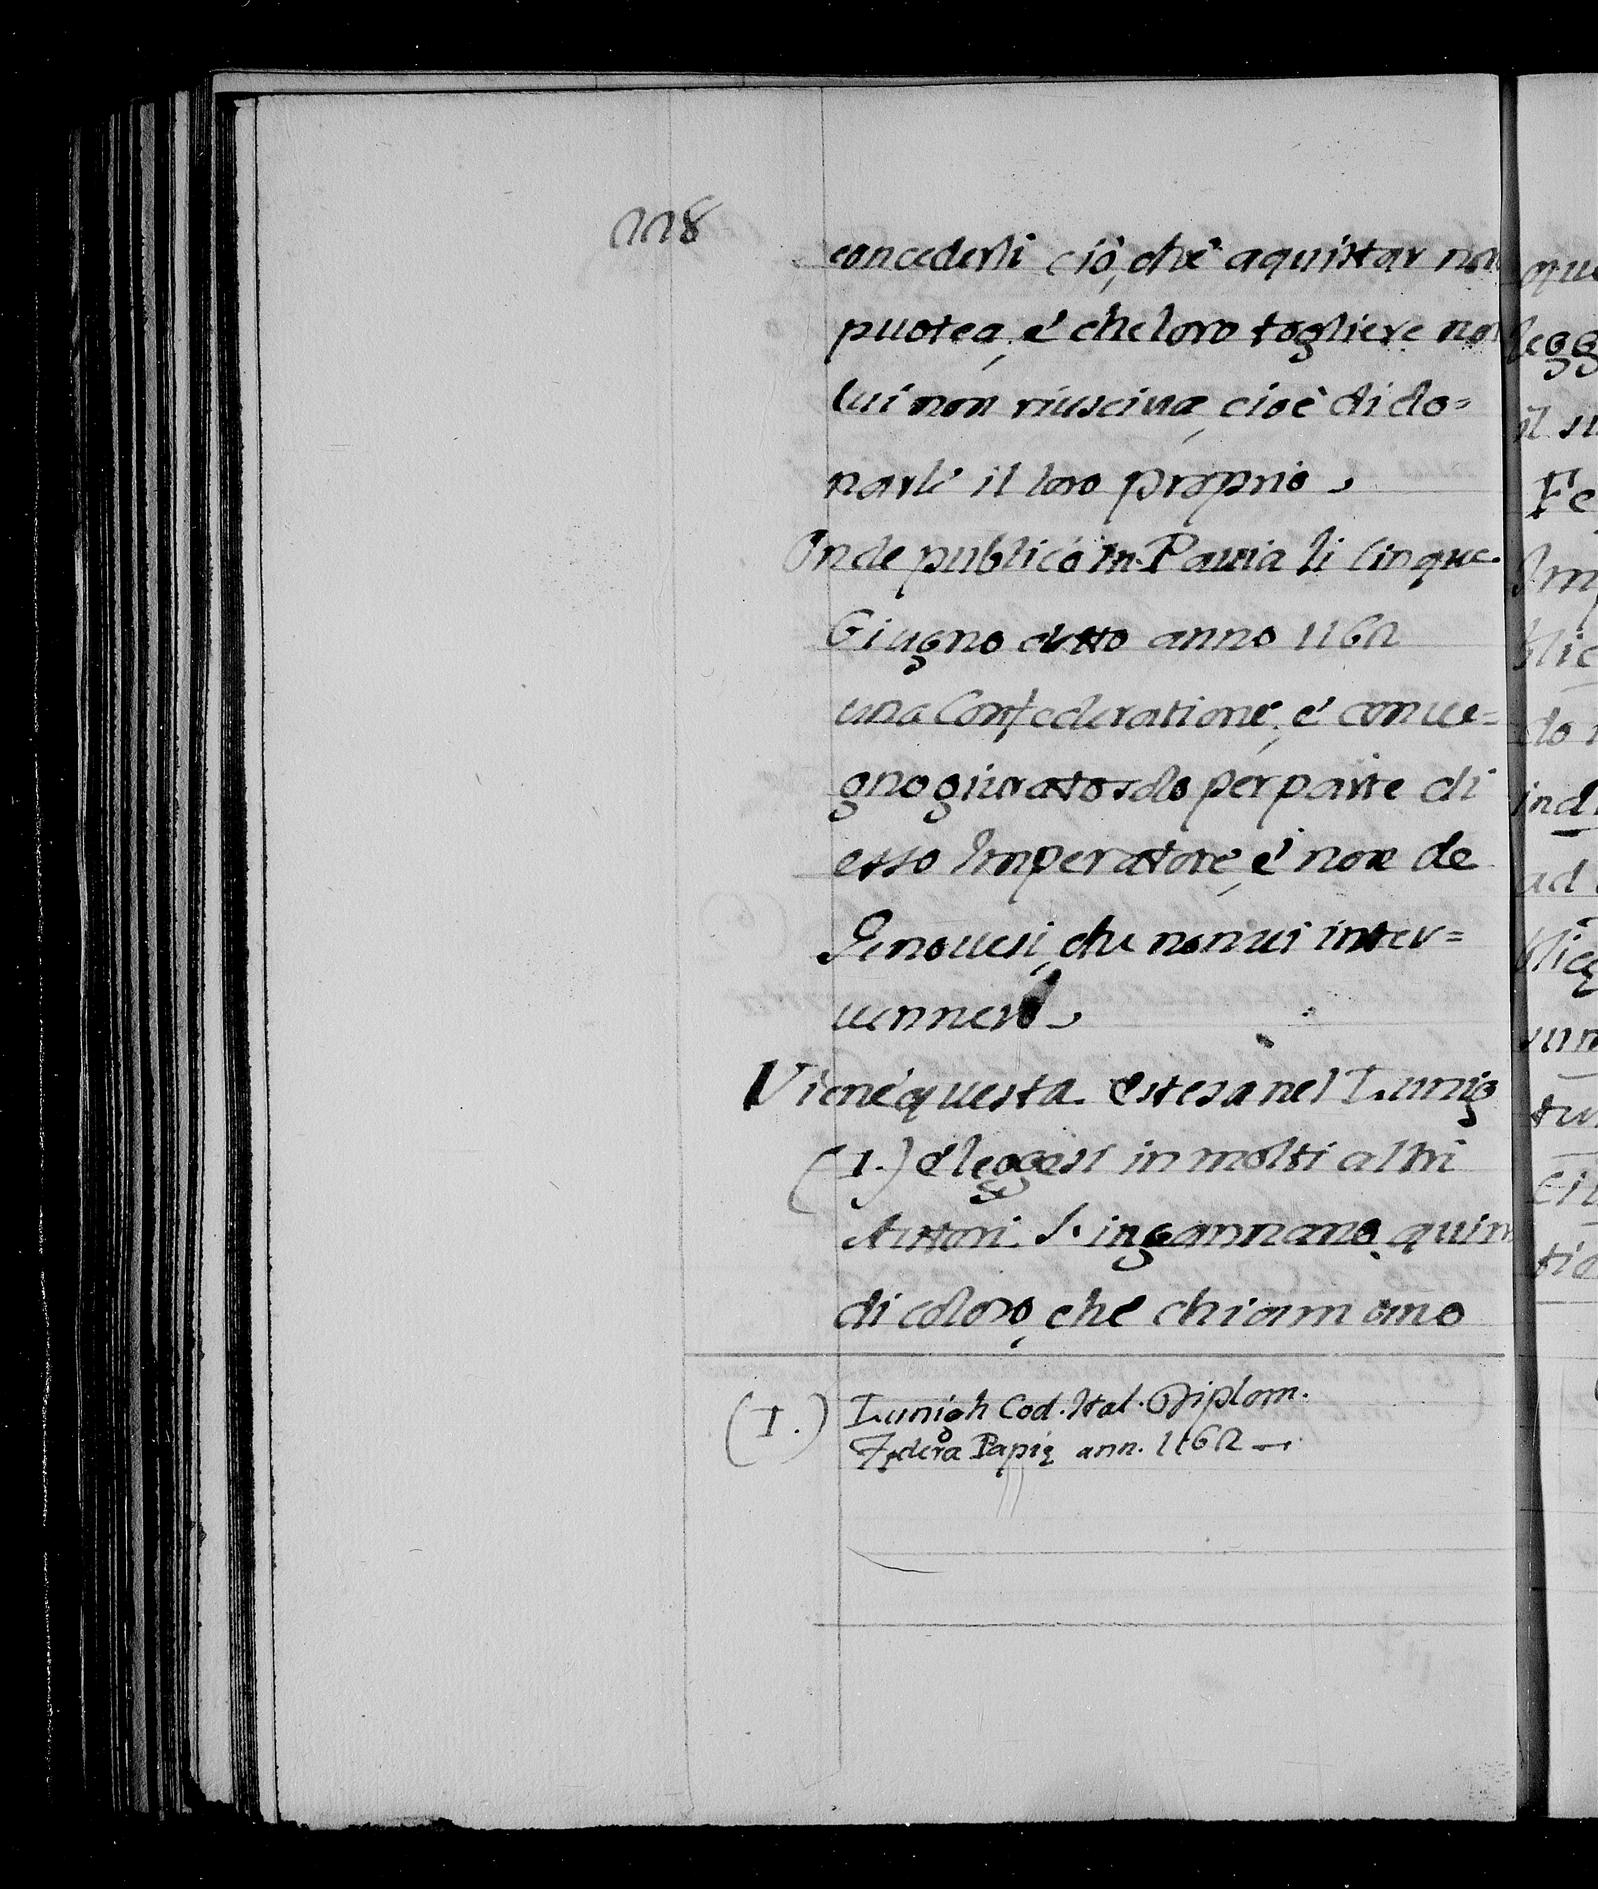 228
concederli ciò, che aquistar non
puotea, e' che loro togliere no
lui non riusciua, cioè di do=
narli il loro proprio.
Onde publicò in Pauia li cinque
Giugno detto anno 1162
una Confederatione, e' conue=
gno giurato solo per parte di
esso Imperatore, e' non de
Genouesi, che non ui inter=
uennero.
Viene questa estesa nel Lunig
(1.) e' leggesi in molti altri
Autori. S'ingannano quin
di coloro, che chiamano
(1.) Lunigh Cod. Ital. Diplom.
Fędera Papię ann. 1162
que
legg
il su
Fe
Imp
blic
do
ind
ad
blicę
sun
tu
tio